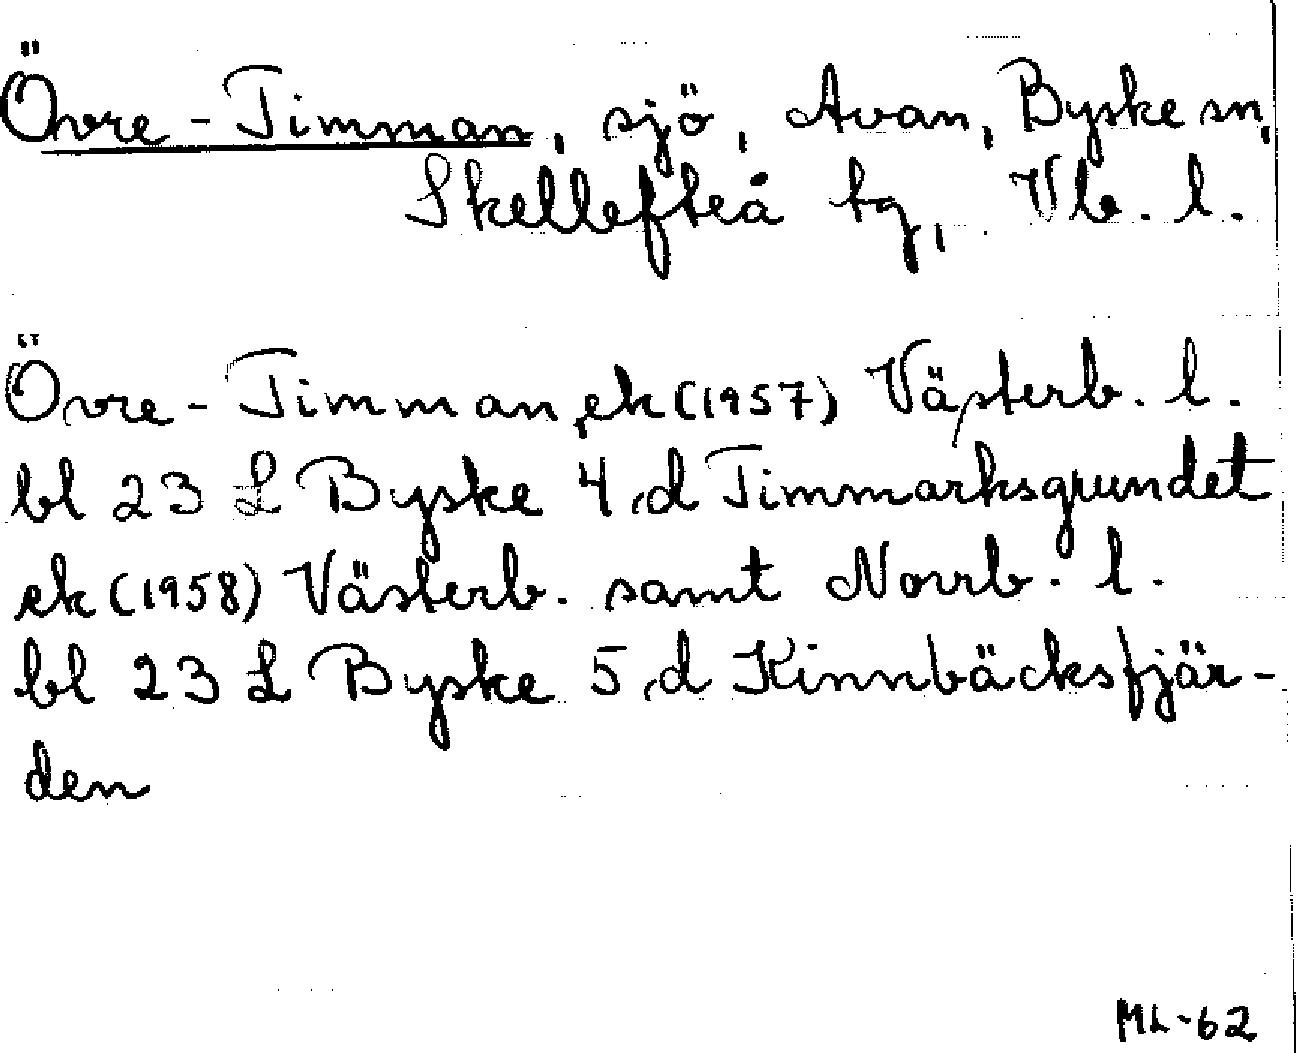 Övre-Timman, sjö, Avan, Byske sn,
Skellefteå tg, Vb. l.
Övre-Timman, ek (1957) Västerb. l.
bl 23 L Byske 4,d Timmarksgrundet
ek (1958) Västerb. samt Norrb. l.
bl 23 L Byske 5,d Kinnbäcksfjär-
den
ML-62